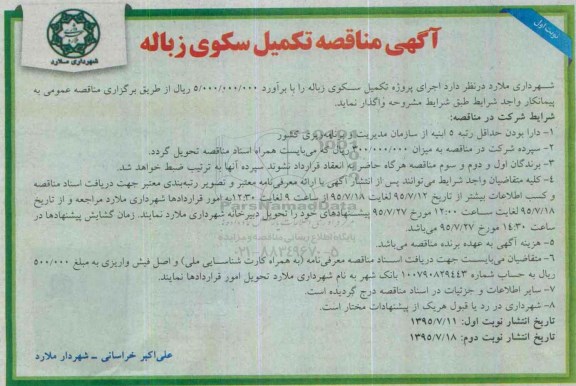 نوبت اول
آگهی مناقصه تکمیل سکوی زباله
شهرداری ملارد
شهرداری ملارد درنظر دارد اجرای پروژه تکمیل سکوی زباله را با برآورد ۵/۰۰۰/۰۰۰/۰۰۰ ریال از طریق برگزاری مناقصه عمومی به
پیمانکار واجد شرایط طبق شرایط مشروحه واگذار نماید.
شرایط شرکت در مناقصه:
۱- دارا بودن حداقل رتبه ۵ ابنیه از سازمان مدیریت و برنامه‌ریزی کشور
۲- سپرده شرکت در مناقصه به میزان ۳۰۰/۰۰۰/۰۰۰ ریال که می‌بایست همراه اسناد مناقصه تحویل گردد.
۳- برندگان اول و دوم و سوم مناقصه هرگاه حاضر به انعقاد قرارداد نشوند سپرده آنها به ترتیب ضبط خواهد شد.
۴- کلیه متقاضیان واجد شرایط می‌توانند پس از انتشار آگهی با ارائه معرفی‌نامه معتبر و تصویر رتبه‌بندی معتبر جهت دریافت اسناد مناقصه
و کسب اطلاعات بیشتر از تاریخ ۹۵/۷/۱۲ لغایت ۹۵/۷/۱۸ از ساعت ۹ لغایت ۱۲:۳۰ به امور قراردادها شهرداری ملارد مراجعه و از تاریخ
۹۵/۷/۱۸ لغایت ساعت ۱۲:۰۰ مورخ ۹۵/۷/۲۷ پیشنهادهای خود را تحویل دبیرخانه شهرداری ملارد نمایند. زمان گشایش پیشنهادها در
ساعت ۱۴:۳۰ مورخ ۹۵/۷/۲۷ می‌باشد.
۵- هزینه آگهی به عهده برنده مناقصه می‌باشد.
۶- متقاضیان می‌بایست جهت دریافت اسناد مناقصه معرفی‌نامه (به همراه کارت شناسایی ملی) و اصل فیش واریزی به مبلغ ۵۰۰/۰۰۰
ریال به حساب شماره ۱۰۰۷۹۰۸۲۹۴۴۳ بانک شهر به نام شهرداری ملارد تحویل امور قراردادها نمایند.
۷- سایر اطلاعات و جزئیات در اسناد مناقصه درج گردیده است.
۸- شهرداری در رد یا قبول هریک از پیشنهادات مختار است.
تاریخ انتشار نوبت اول: ۱۳۹۵/۷/۱۱
تاریخ انتشار نوبت دوم: ۱۳۹۵/۷/۱۸
علی‌اکبر خراسانی - شهردار ملارد
ParsNamadData
پایگاه اطلاع رسانی مناقصه و مزایده
۰۲۱-۸۸۳۴۹۶۷۰-۵